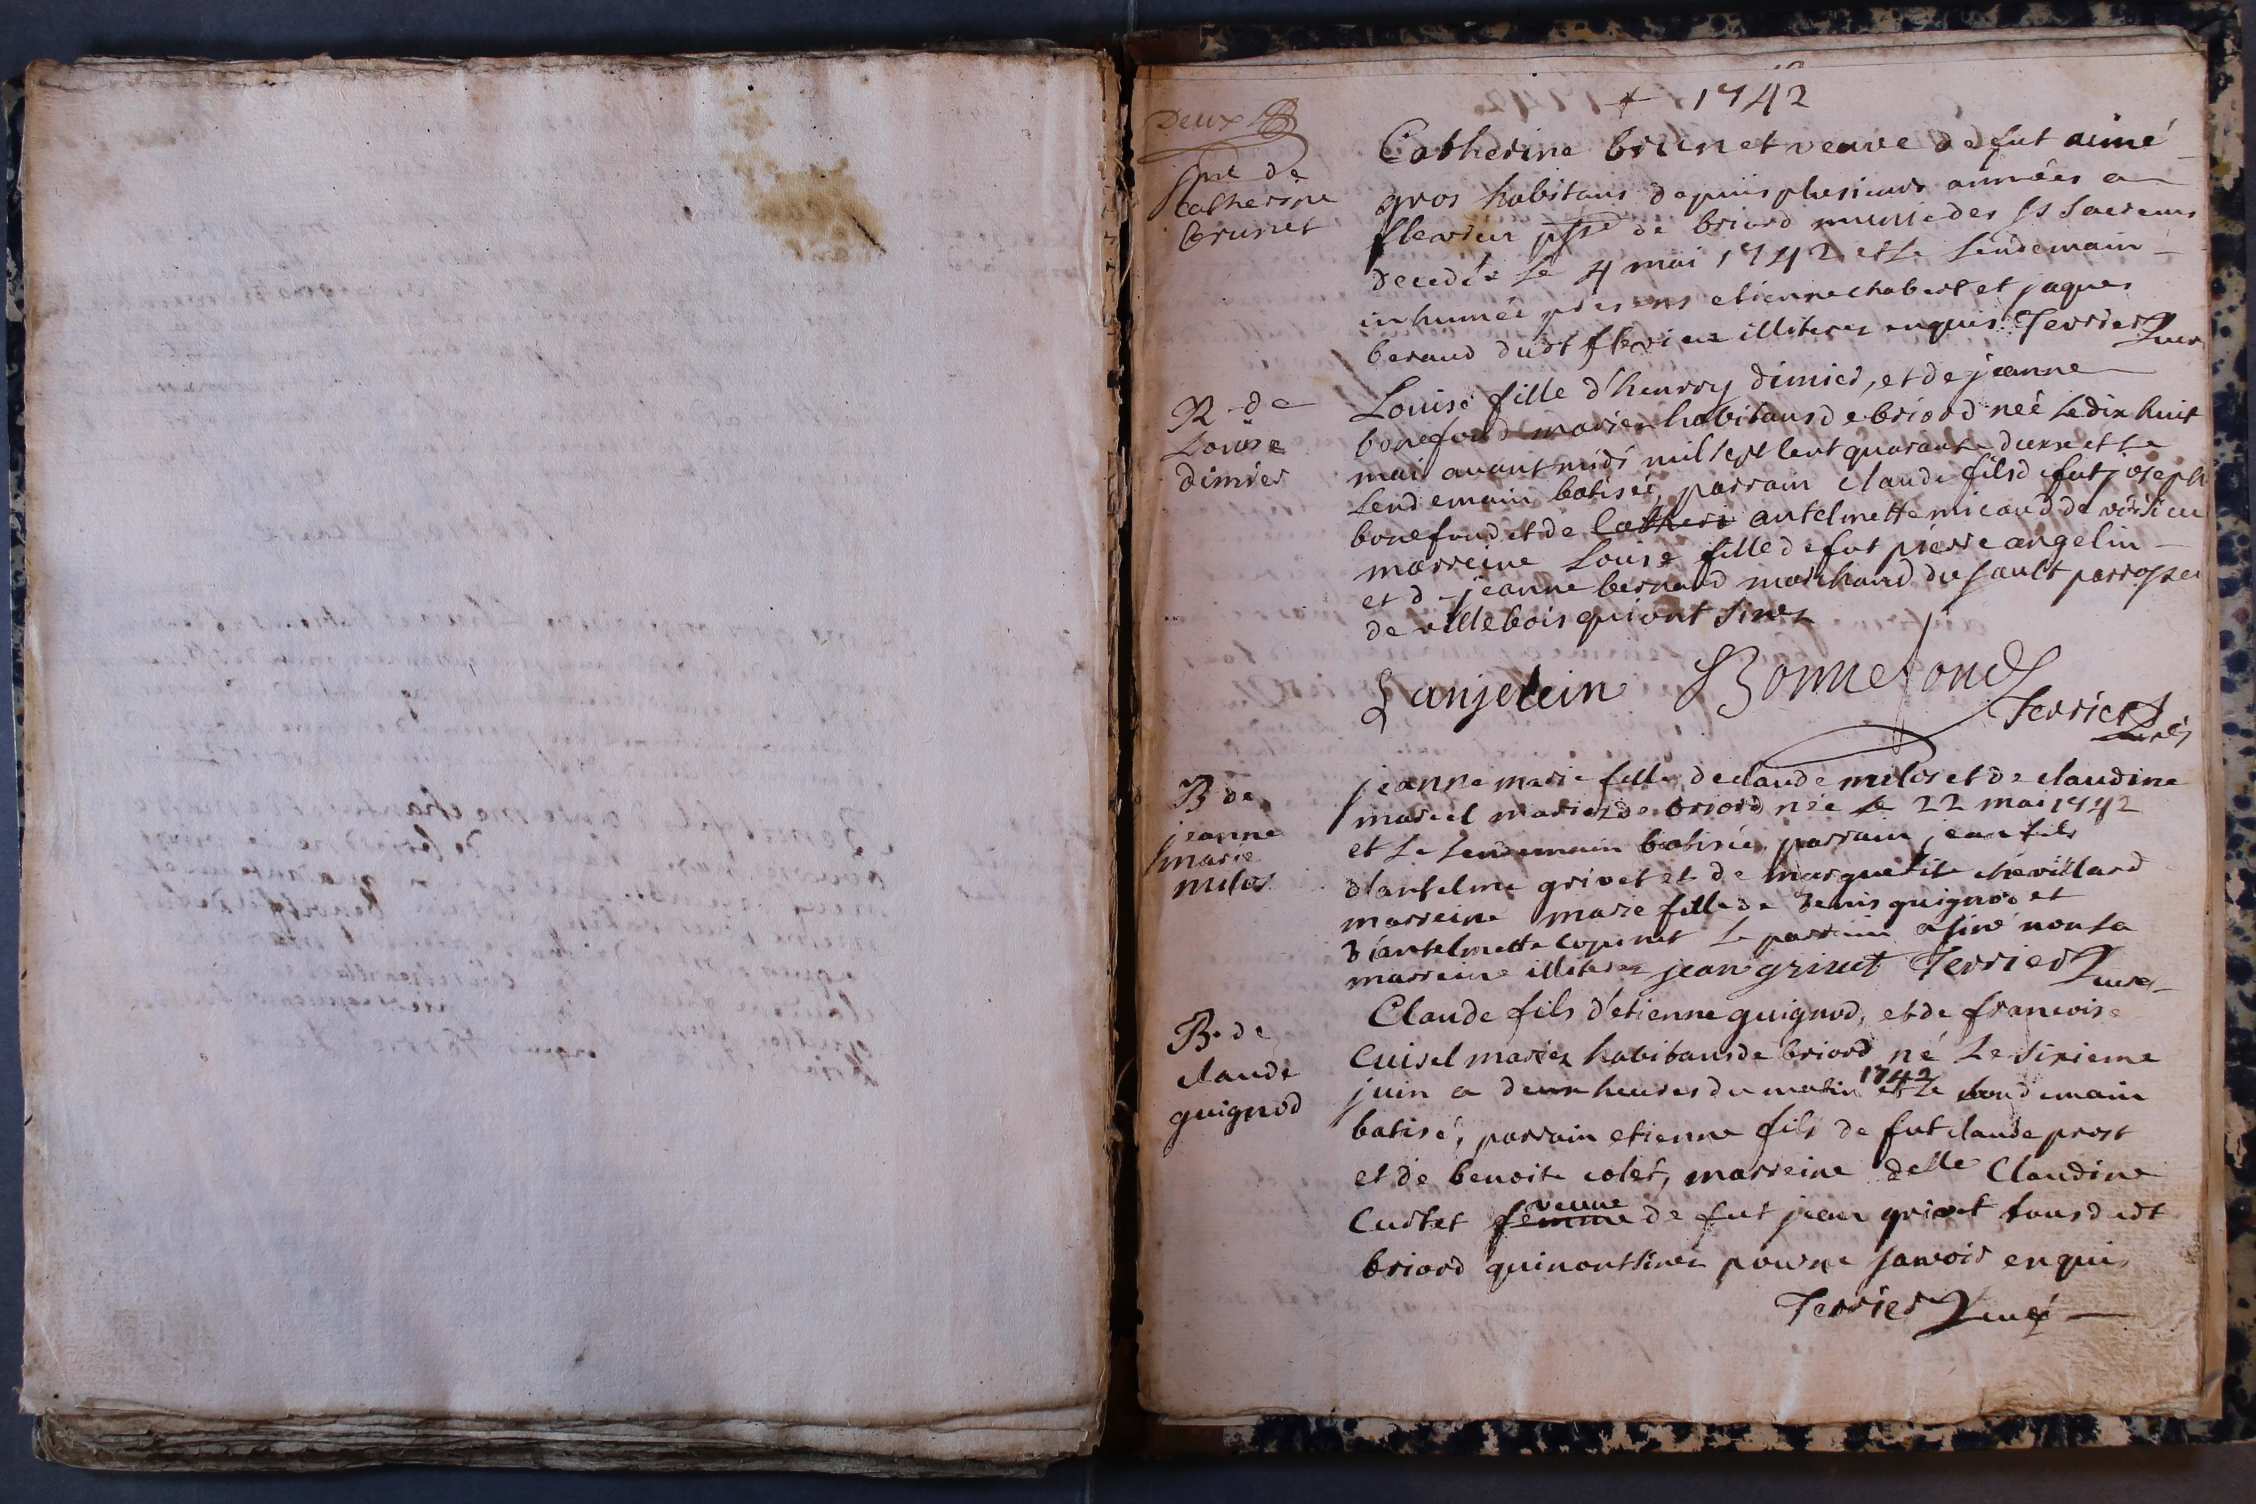 1742
Deux
Catherine brunet veuve de fut aimé
gros habitans depuis plusieurs années a
flevieu psse de briord munie des sts sacrems
decedée le 4 mai 1742 et le lendemain
inhumée presens etienne chabert et jaques
beraud dudt flevieu illiteres enquis Terrier curé
catherine
brunet
Louise fille d'henrry dimier, et de jeanne
bonefond mariez habitans de briord neé le dix huit
mai avant midi mil sept cent quarante deux et le
lendemain batisée, parrain claude fils de fut joseph
bonefond et de catheri antelmette micaud de vérsieu
marreine Louise fille de fut pierre angelin
et de jeanne bernard marchand du sault parrosse
de villebois qui ont sinez
de
Louise
dimier
L anjelein Bonnefond
Terrier curé
jeanne marie fille de claude milos et de claudine
marcel mariez de briord née le 22 mai 1742
et le lendemain batisée, parrain jean fils
d'antelme grivet et de marguerite chevillard
marreine marie fille de denis guignod et
d'antelmette copinet le parrain a siné non la
marreine illitere jean grivet Terrier curé
B de
jeanne
marie
milos
Claude fils d'etienne guignod, et de francoise
Cuisel mariez habitans de briord né le sixieme
juin a deux heures du matin 1742 et le lendemain
batisé, parrain etienne fils de fut claude prost
et de benoite colet, marreine delle Claudine
Curtet femme veuve de fut jean grivet tous dudt
briord qui n'ont sinez pour ne savoir enquis
Terrier curé
B. de
claude
guignod